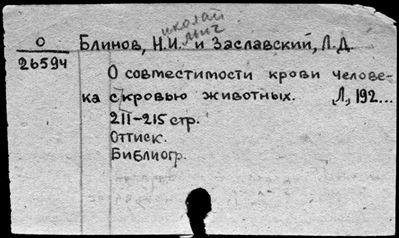 иколай
О Блинов, Н.И. и Заславский, Л.Д.
26594
О совместимости крови челове-
ка с кровью животных. Л., 192...
211-215 стр.
Оттиск.
Библиогр.